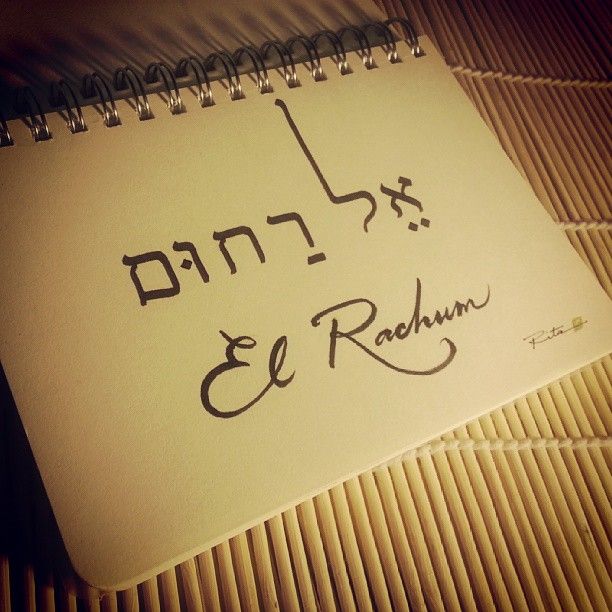 אֵל רַחוּם
El Rachum
Rita